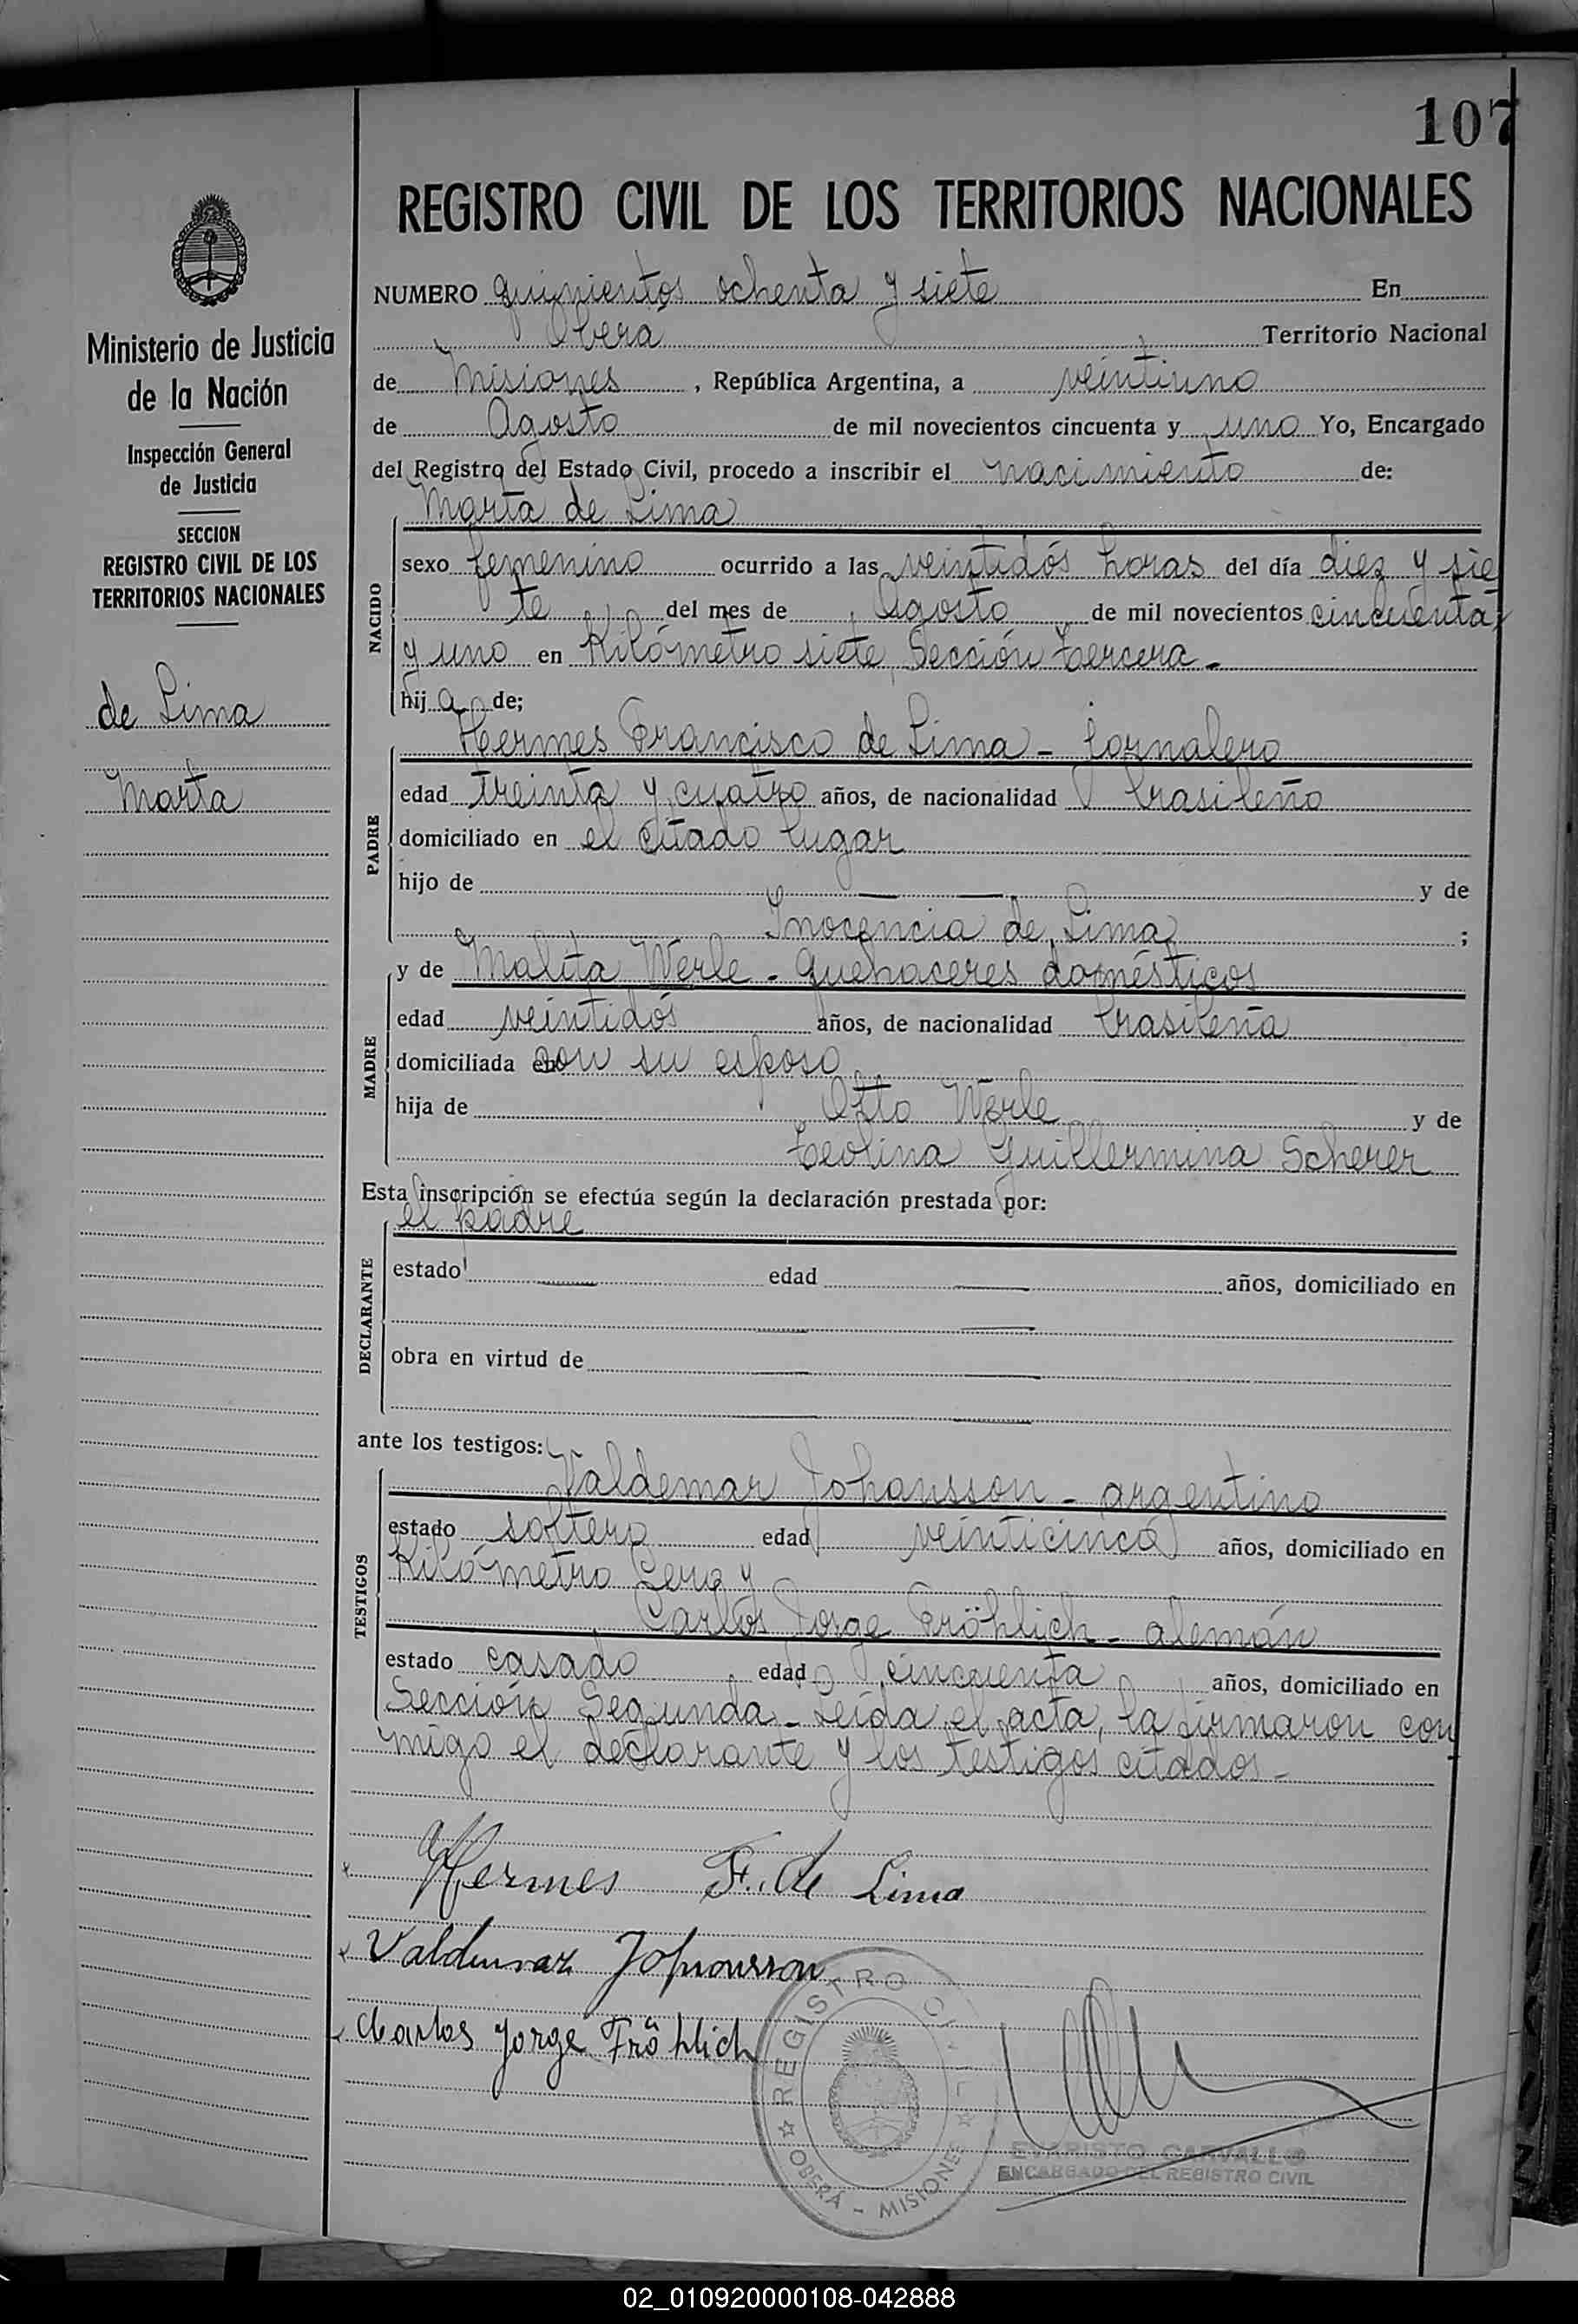 107
REGISTRO CIVIL DE LOS TERRITORIOS NACIONALES
Ministerio de Justicia
de la Nación
Inspección General
de Justicia
SECCION
REGISTRO CIVIL DE LOS
TERRITORIOS NACIONALES
de Lima
Marta
NUMERO quinientos ochenta y siete En
Oberá Territorio Nacional
de Misiones, República Argentina, a veintiuno
de Agosto de mil novecientos cincuenta y uno Yo, Encargado
del Registro del Estado Civil, procedo a inscribir el nacimiento de:
Marta de Lima
NACIDO
sexo femenino ocurrido a las veintidós horas del día diez y sie
te del mes de Agosto de mil novecientos cincuenta
y uno en Kilómetro siete, Sección Tercera.-
hija de;
PADRE
Hermes Francisco de Lima - Jornalero
edad treinta y cuatro años, de nacionalidad brasileño
domiciliado en el citado lugar
hijo de — — y de
Inocencia de Lima ;
MADRE
y de Malita Werle - quehaceres domésticos
edad veintidós años, de nacionalidad brasileña
domiciliada en con su esposo
hija de Otto Werle y de
Teolina Guillermina Scherer
Esta inscripción se efectúa según la declaración prestada por:
el padre
DECLARANTE
estado — edad — años, domiciliado en
— —
obra en virtud de — —
— —
ante los testigos:
TESTIGOS
Valdemar Johansson - argentino
estado soltero edad veinticinco años, domiciliado en
Kilómetro Cero y
Carlos Jorge Fröhlich - alemán
estado casado edad cincuenta años, domiciliado en
Sección Segunda - Leída el acta, la firmaron con
migo el declarante y los testigos citados -
Hermes F. de Lima
Valdemar Johansson
Carlos Jorge Fröhlich
REGISTRO CIVIL
OBERA - MISIONES
EVARISTO CARVALLO
ENCARGADO DEL REGISTRO CIVIL
02_010920000108-042888